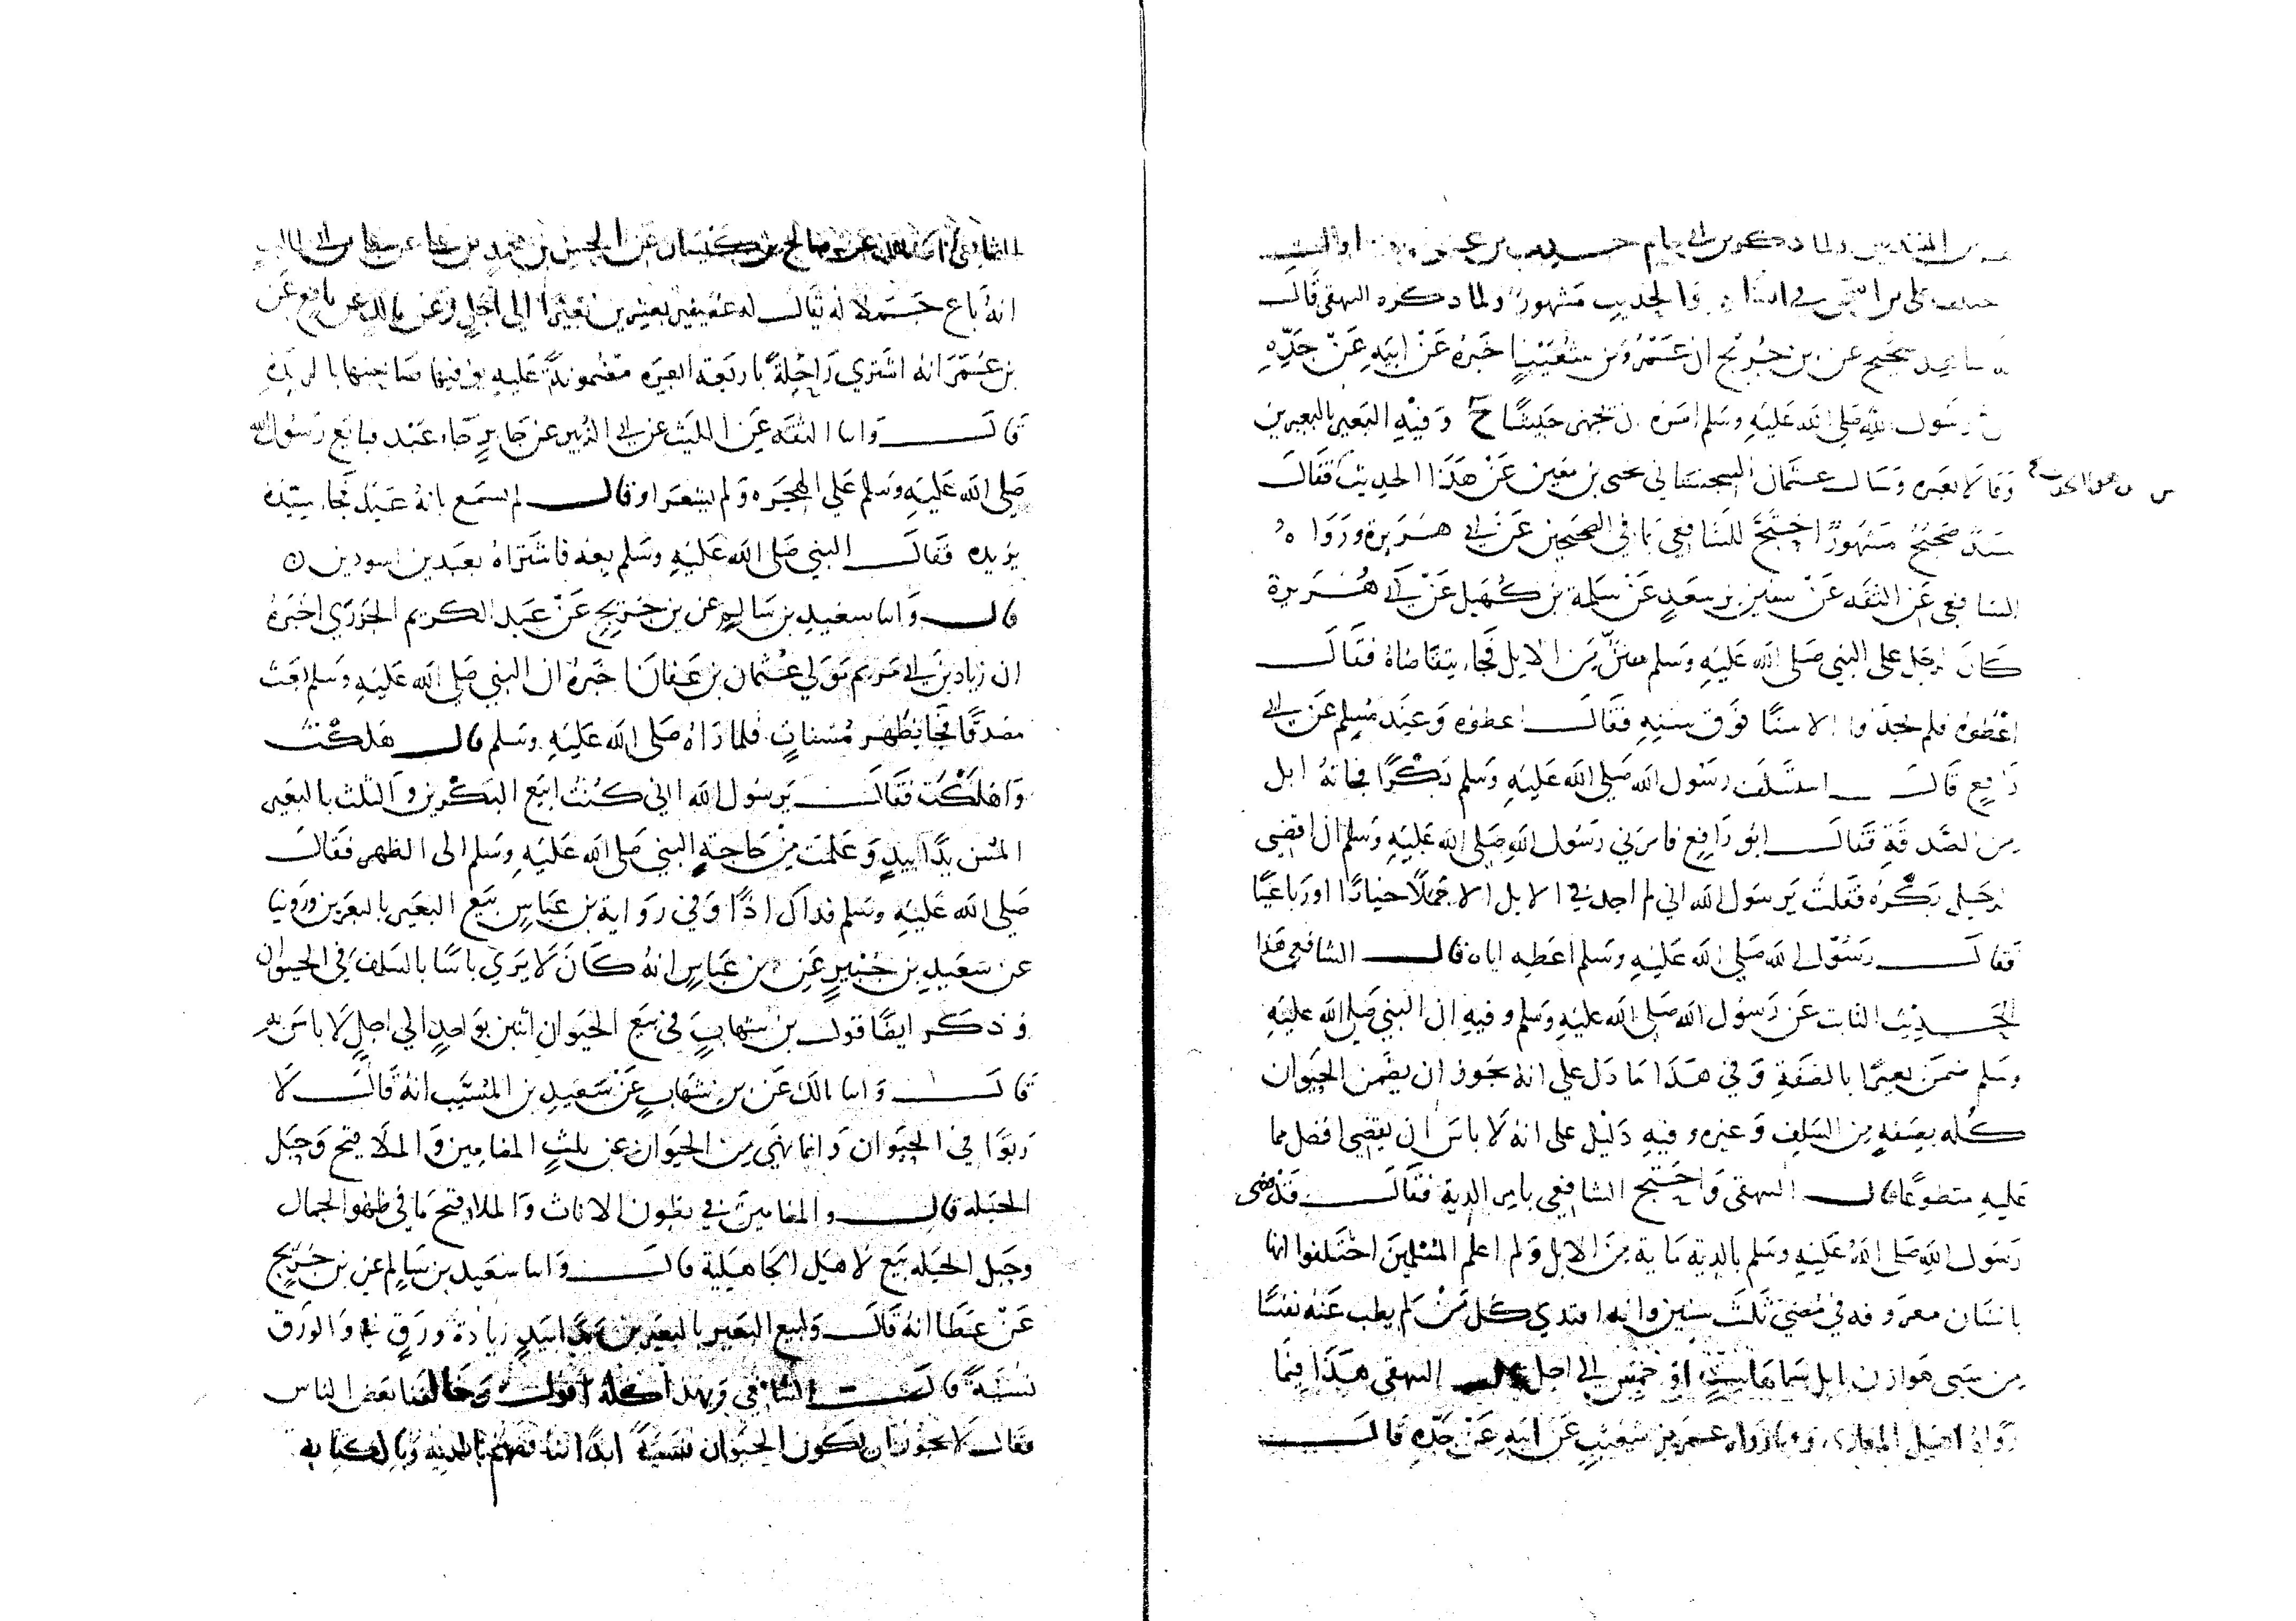 ولما ذكر بن ابي
والحديث مشهور ولما ذكره البهقي قال
صحيح عن بن جريج ان عمرو بن شعيب اخبره عن ابيه عن جده
رسول الله صلي الله عليه وسلم امره ان يجهز جيشا ح وفيه البعير بالبعيرين
وقال لا بعيره وسال عثمان السجستاني يحيى بن معين عن هذا الحديث فقال
سند صحيح مشهور احتج للشافعي بما في الصحيحين عن ابي هريرة ورواه
الشافعي عن الثقه عن سفين بن سعيد عن سلمة بن كهيل عن ابي هريرة
كان لرجل على النبي صلى الله عليه وسلم سن من الابل فجاء يتقاضاه فقال
اعطوه فلم يجدوا الا سنا فوق سنه فقال اعطوه وعند مسلم عن ابي
رافع قال استسلف رسول الله صلي الله عليه وسلم بكرا فجاته ابل
من الصدقة فقال ابو رافع فامرني رسول الله صلي الله عليه وسلم ان اقضي
الرجل بكره فقلت يرسول الله اني لم اجد في الابل الا جملا خيارا او رباعيا
فقال رسول الله صلي الله عليه وسلم اعطه اياه قال الشافعي هذا
الحديث الثابت عن رسول الله صلى الله عليه وسلم وفيه ان النبي صلي الله عليه
وسلم ضمن بعيرا بالصفة وفي هذا ما دل علي انه يجوز ان يضمن الحيوان
كله بصفه من السلف وغيره وفيه دليل على انه لا باس ان يقضي افضل مما
عليه متطوعا قال البهقي واحتج الشافعي بامر الدية فقال قد قضى
رسول الله صلى الله عليه وسلم بالدية ماية من الابل ولم اعلم المسلمين اختلفوا انها
باسنان معروفه في مضي ثلث سنين وانه افتدي كل من لم يطب عنه نفسا
من سبى هوازن ابل سماها ست او خمس الي اجل قال البهقي هذا فيما
رواه اهل المغازي وفيما رواه عمر بن شعيب عن ابيه عن جده قال
الشافعي انا مالك عن صالح بن كيسان عن الحسن بن محمد بن علي عن علي بن ابي طالب
انه باع جملا له يقال له عصيفير بعشرين بعيرا الي اجل وعن مالك عن نافع عن
بن عمر انه اشتري راحلة باربعة ابعره مضمونة عليه يوفيها صاحبها بالربذة
قال وانا الثقه عن الليث عن ابي الزبير عن جابر جاء عبد فبايع رسول الله
صلي الله عليه وسلم علي الهجره ولم يشعر او قال لم يسمع انه عبد فجاء سيده
يريده فقال النبي صلى الله عليه وسلم بعنه فاشتراه بعبدين اسودين
قال وانا سعيد بن سالم عن بن جريج عن عبد الكريم الجزري اخبره
ان زياد بن ابي مريم مولي عثمان بن عفان اخبره ان النبي صلي الله عليه وسلم بعث
مصدقا فجا بظهر مسنات فلما راه صلى الله عليه وسلم قال هلكت
واهلكت فقال يرسول الله اني كنت ابيع البكرين والثلث بالبعير
المسن يدا بيد وعلمت من حاجة النبي صلى الله عليه وسلم الى الظهر فقال
صلي الله عليه وسلم فذاك اذا وفي رواية بن عباس بيع البعير بالبعيرين وروينا
عن سعيد بن جبير عن بن عباس انه كان لا يري باسا بالسلف في الحيوان
وذكر ايضا قول بن شهاب في بيع الحيوان اثنين بواحد الي اجل لا باس به
قال وانا مالك عن بن شهاب عن سعيد بن المسيب انه قال لا
ربوا في الحيوان وانما نهي من الحيوان عن ثلث المضامين والملاقيح وحبل
الحبله قال والمضامين في بطون الاناث والملاقيح ما في ظهور الجمال
وحبل الحبله بيع لاهل الجاهلية قال وانا سعيد بن سالم عن بن جريج
عن عطا انه قال وليبع البعير بالبعيرين يدا بيد زيادة ورق والورق
نسية قال الشافعي وبهذا كله اقول وخالفنا بعض الناس
فقال لا يجوز ان يكون الحيوان نسية ابدا بالدية وبالكتابه